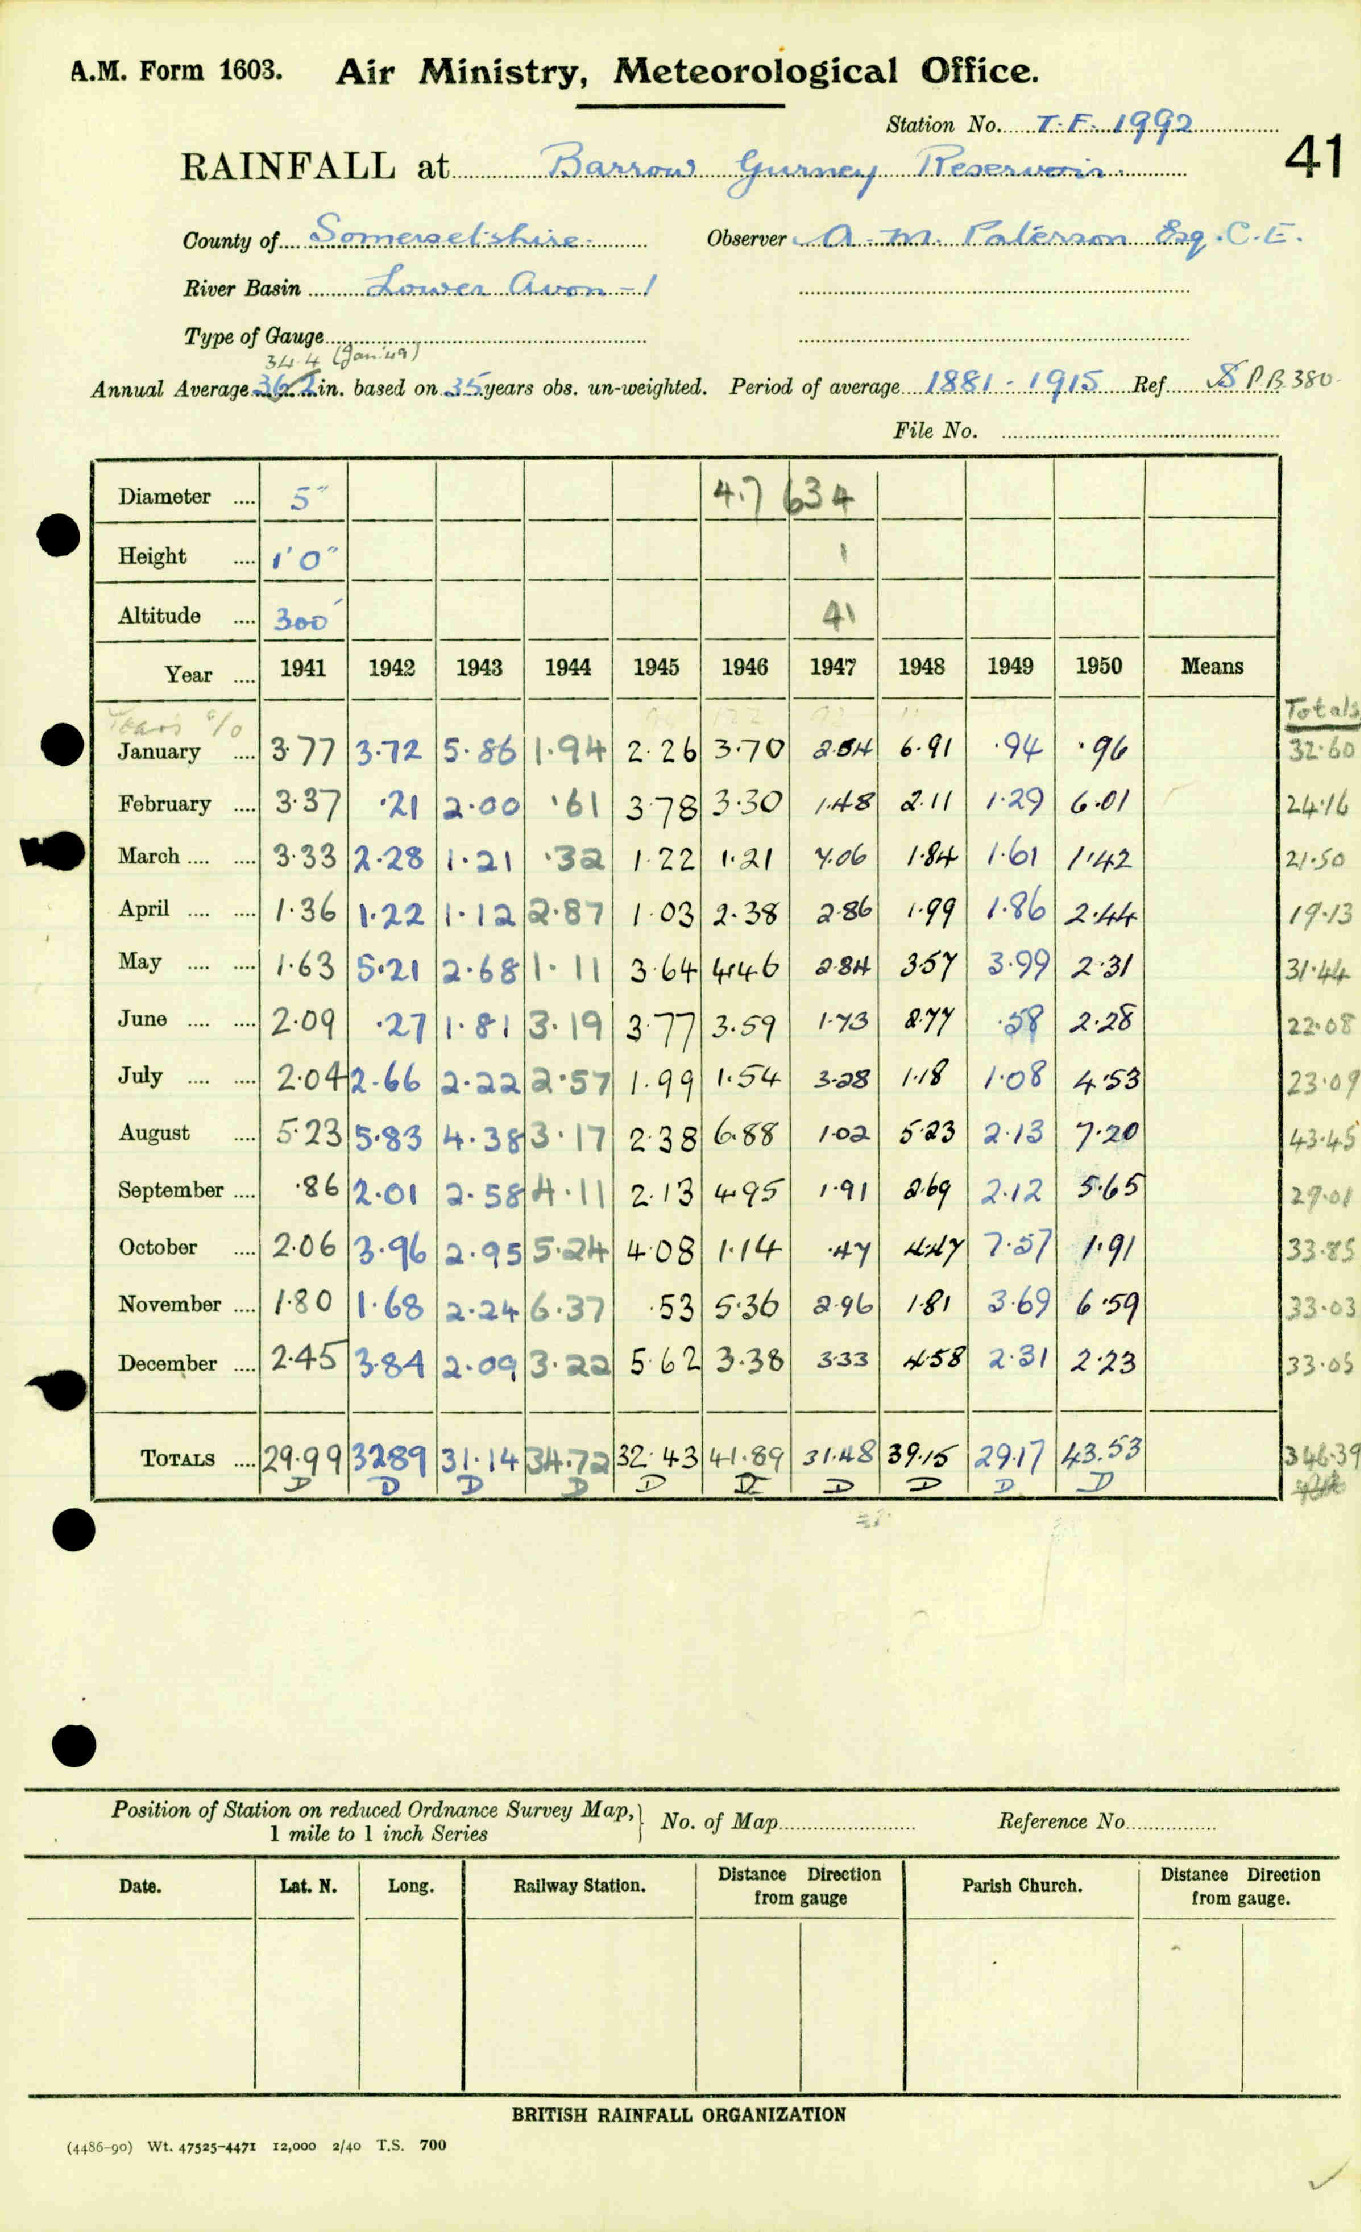 A.M. Form 1603. Air Ministry, Meteorological Office.
Station No. T.F. 1992
41
RAINFALL at Barrow Gurney Reservoir.
County of Somersetshire. Observer A. M. Paterson Esq. C.E.
River Basin Lower Avon - 1
Type of Gauge
34.4 (Jan '49)
Annual Average 36.2 in. based on 35 years obs. un-weighted. Period of average 1881 - 1915 Ref. S P B 380
File No.
Diameter .... 5" 4.7 634
Height .... 1' 0" 1
Altitude .... 300' 41
Year .... 1941 1942 1943 1944 1945 1946 1947 1948 1949 1950 Means
Totals
January .... 3.77 3.72 5.86 1.94 2.26 3.70 2.54 6.91 .94 .96 32.60
February .... 3.37 .21 2.00 .61 3.78 3.30 1.48 2.11 1.29 6.01 24.16
March .... .... 3.33 2.28 1.21 .32 1.22 1.21 7.06 1.84 1.61 1.42 21.50
April .... .... 1.36 1.22 1.12 2.87 1.03 2.38 2.86 1.99 1.86 2.44 19.13
May .... .... 1.63 5.21 2.68 1.11 3.64 4.46 2.84 3.57 3.99 2.31 31.44
June .... .... 2.09 .27 1.81 3.19 3.77 3.59 1.73 2.77 .58 2.28 22.08
July .... .... 2.04 2.66 2.22 2.57 1.99 1.54 3.28 1.18 1.08 4.53 23.09
August .... 5.23 5.83 4.38 3.17 2.38 6.88 1.02 5.23 2.13 7.20 43.45
September .... .86 2.01 2.58 4.11 2.13 4.95 1.91 2.69 2.12 5.65 29.01
October .... 2.06 3.96 2.95 5.24 4.08 1.14 .47 4.47 7.57 1.91 33.85
November .... 1.80 1.68 2.24 6.37 .53 5.36 2.96 1.81 3.69 6.59 33.03
December .... 2.45 3.84 2.09 3.22 5.62 3.38 3.33 4.58 2.31 2.23 33.05
TOTALS .... 29.99 32.89 31.14 34.72 32.43 41.89 31.48 39.15 29.17 43.53 346.39
D D D D D D D D D D
Position of Station on reduced Ordnance Survey Map, } No. of Map Reference No.
1 mile to 1 inch Series
Date. Lat. N. Long. Railway Station. Distance Direction from gauge Parish Church. Distance Direction from gauge.
BRITISH RAINFALL ORGANIZATION
(4486-90) Wt. 47525-4471 12,000 2/40 T.S. 700